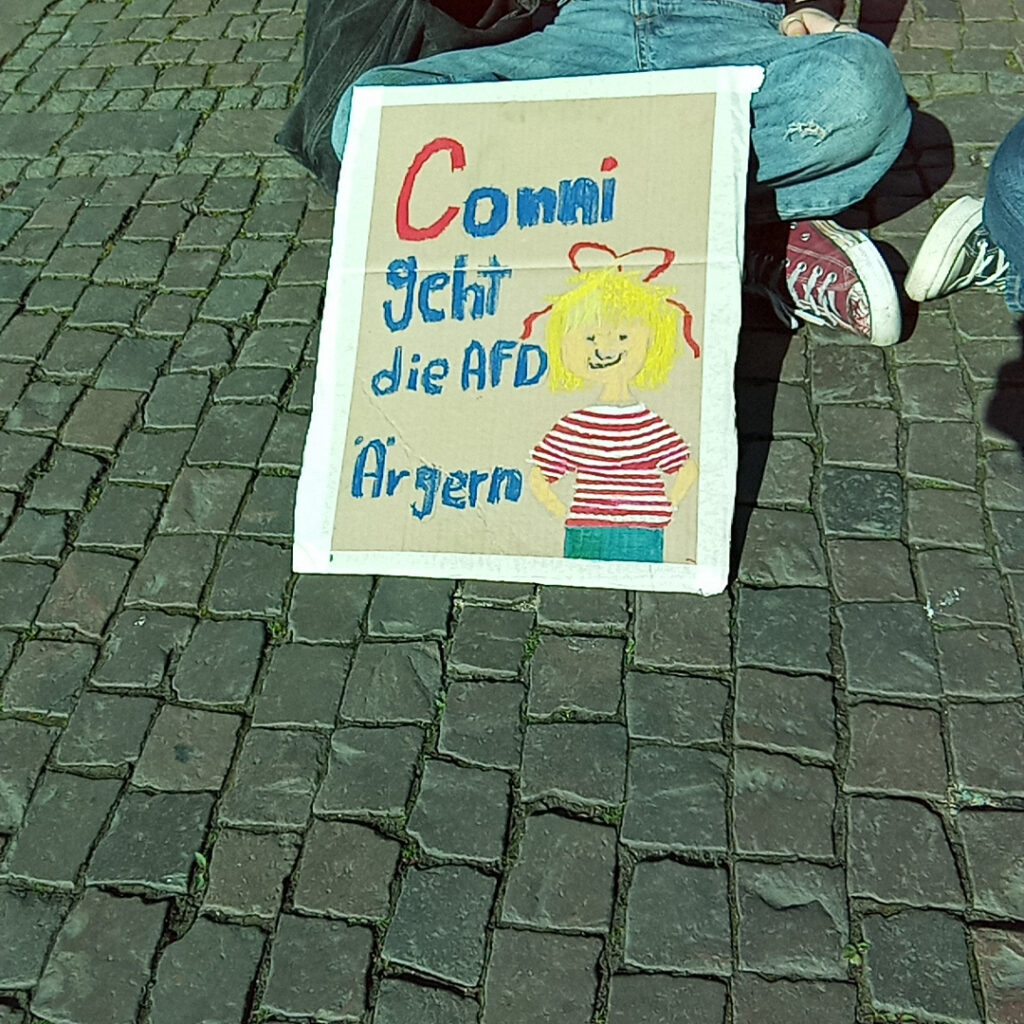 Conni
geht
die AFD
Ärgern